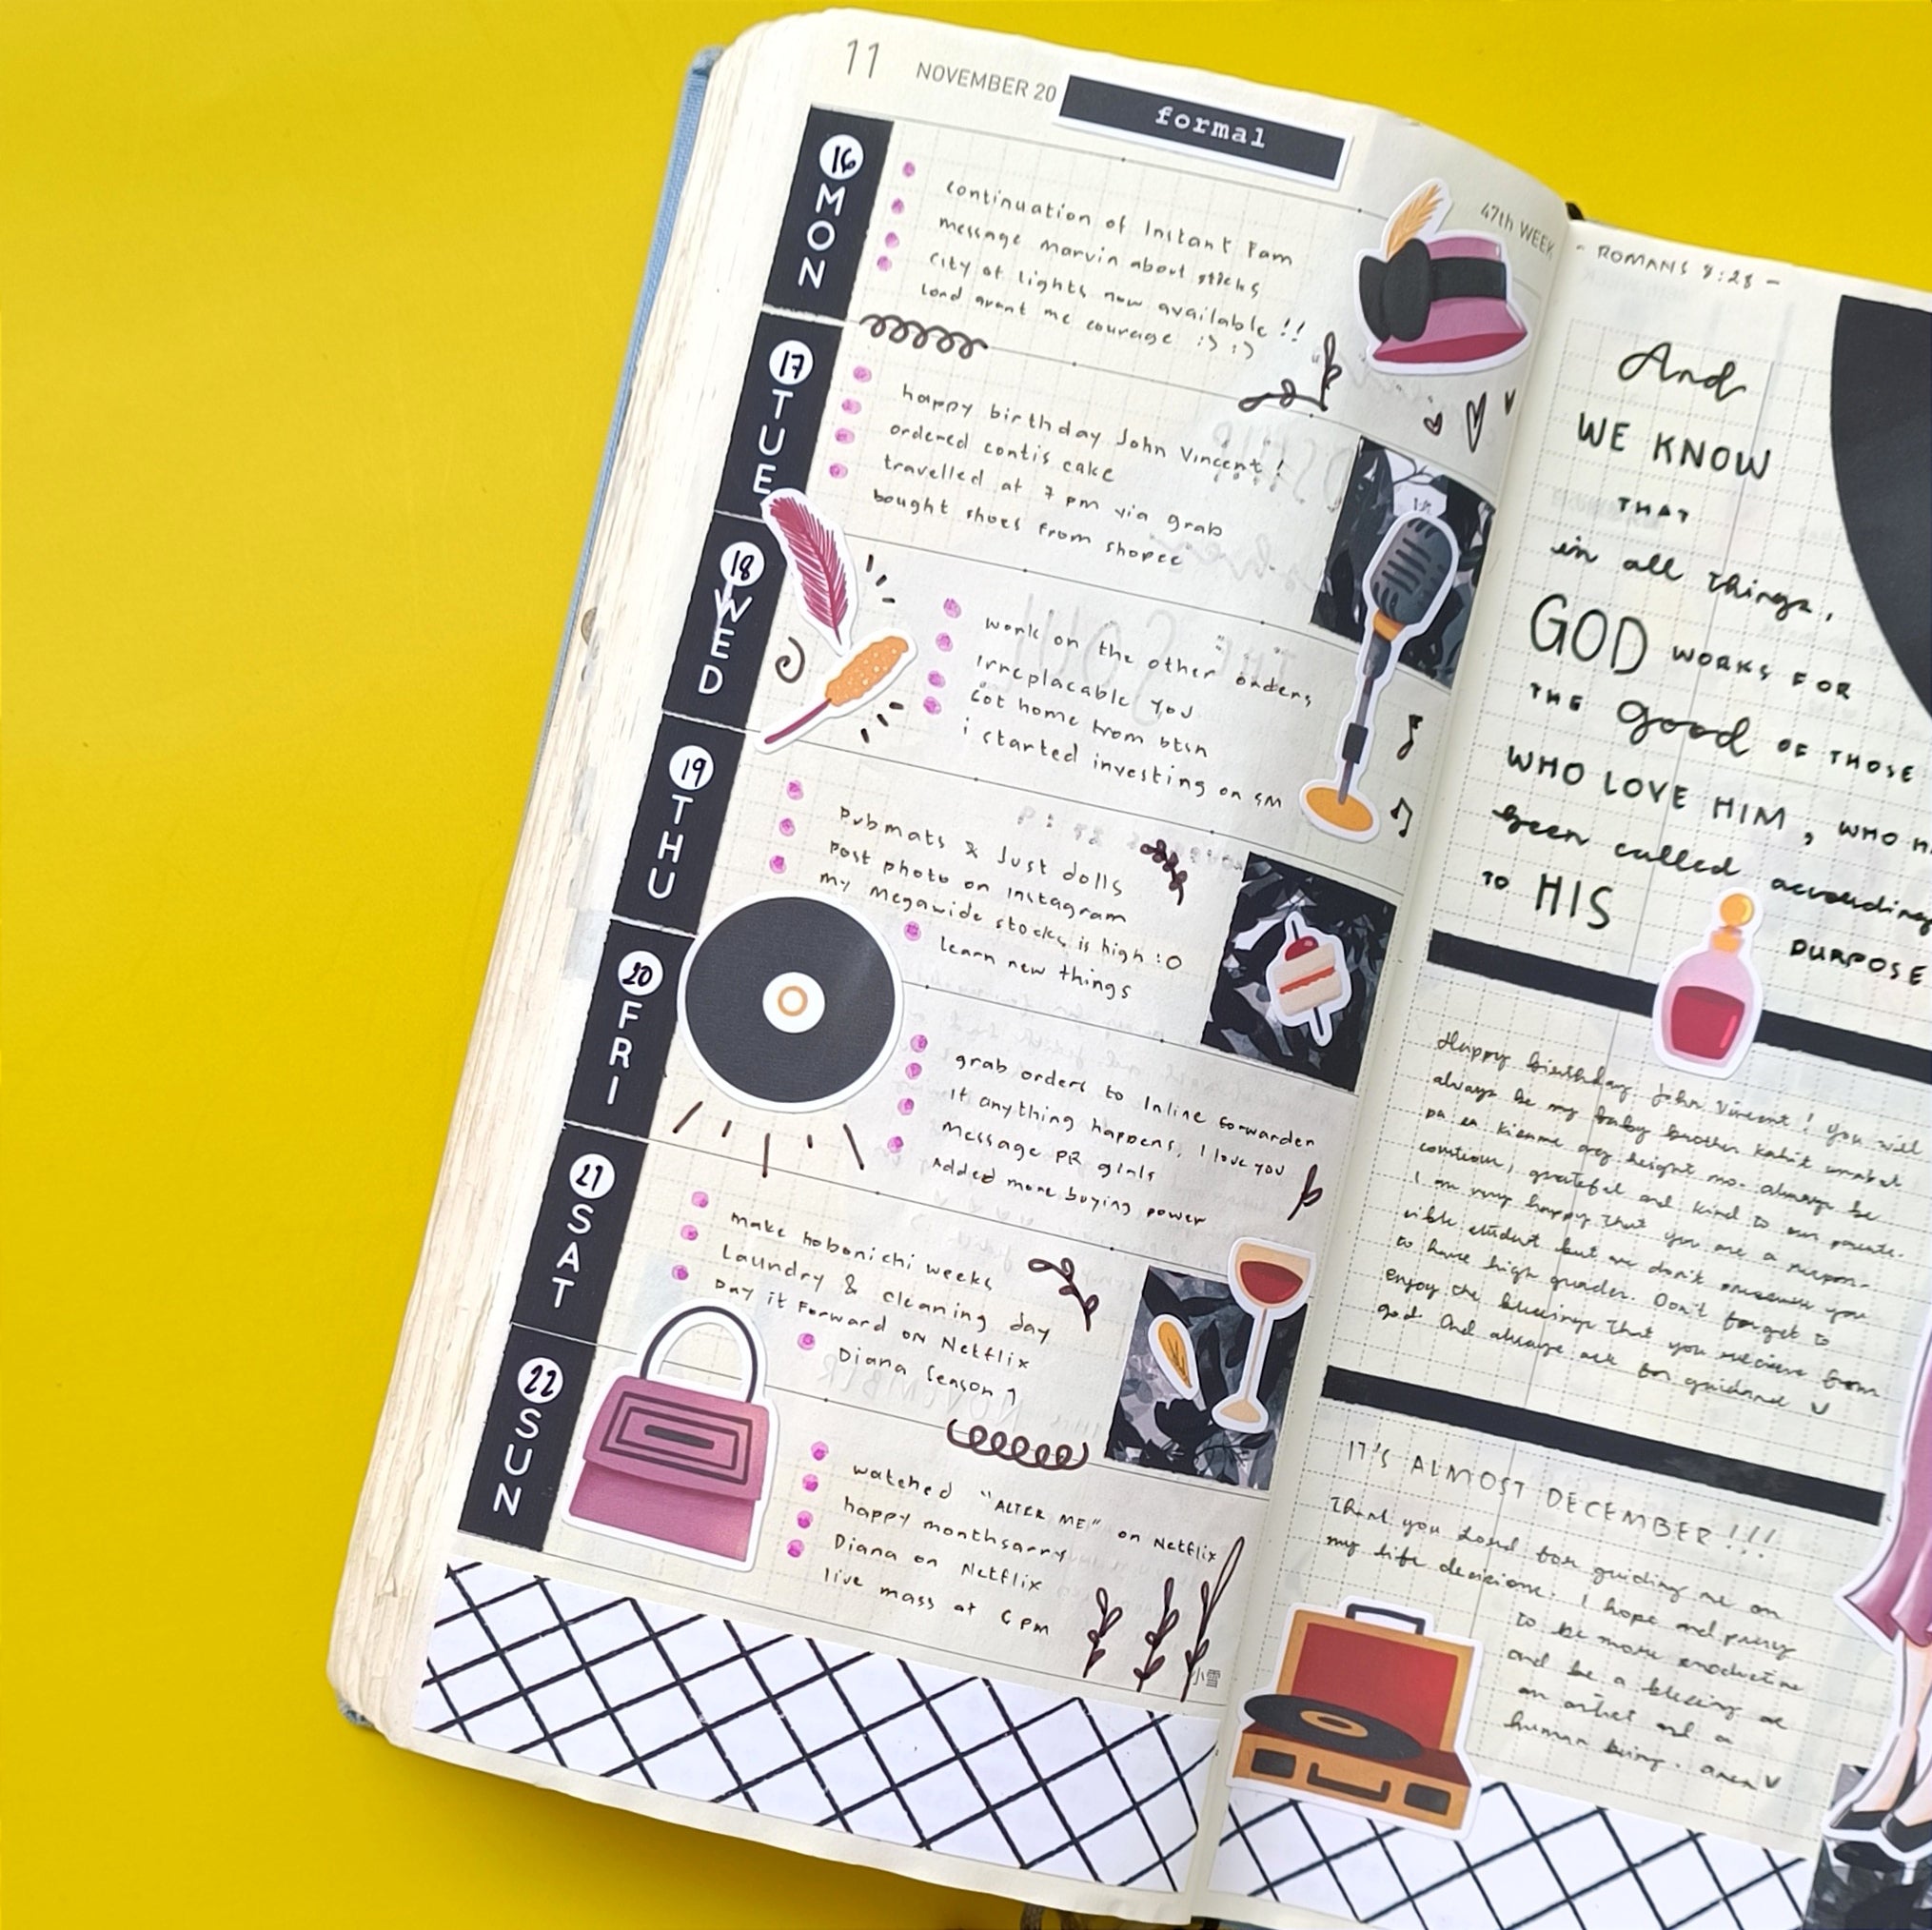 11 NOVEMBER 20
formal
47th WEEK
16 MON
continuation of Instant Fam
message marvin about sticks
City of Lights now available !!
Lord grant me courage :) :)
17 TUE
happy birthday John Vincent !
ordered contis cake
travelled at 7 pm via grab
bought shoes from shopee
18 WED
work on the other orders
Irreplacable You
Got home from btsn
i started investing on GM
19 THU
Pubmats & Just dolls
Post photo on Instagram
my Megawide stocks is high :O
Learn new things
20 FRI
grab orders to Inline forwarden
If anything happens, I love you
Message PR girls
Added more buying power
21 SAT
make hobonichi weeks
Laundry & cleaning day
Day it Forward on Netflix
Diana Season 1
22 SUN
watched "ALTER ME" on Netflix
happy monthsarry
Diana on Netflix
live mass at 6 pm
小雪
- ROMANS 8:28 -
And
WE KNOW
THAT
in all things,
GOD WORKS FOR
THE good OF THOSE
WHO LOVE HIM, WHO
been called according
TO HIS
PURPOSE
Happy birthday John Vincent! You will
always be my baby brother kahit umabot
pa sa kisame ang height mo. Always be
courteous, grateful and kind to our parents.
I am very happy that you are a respon-
sible student but we don't pressure you
to have high grades. Don't forget to
enjoy the blessings that you receive from
god. And always ask for guidance
IT'S ALMOST DECEMBER!!!
Thank you Lord for guiding me on
my life decisions. I hope and pray
to be more productive
and be a blessing as
an artist and a
human being. amen